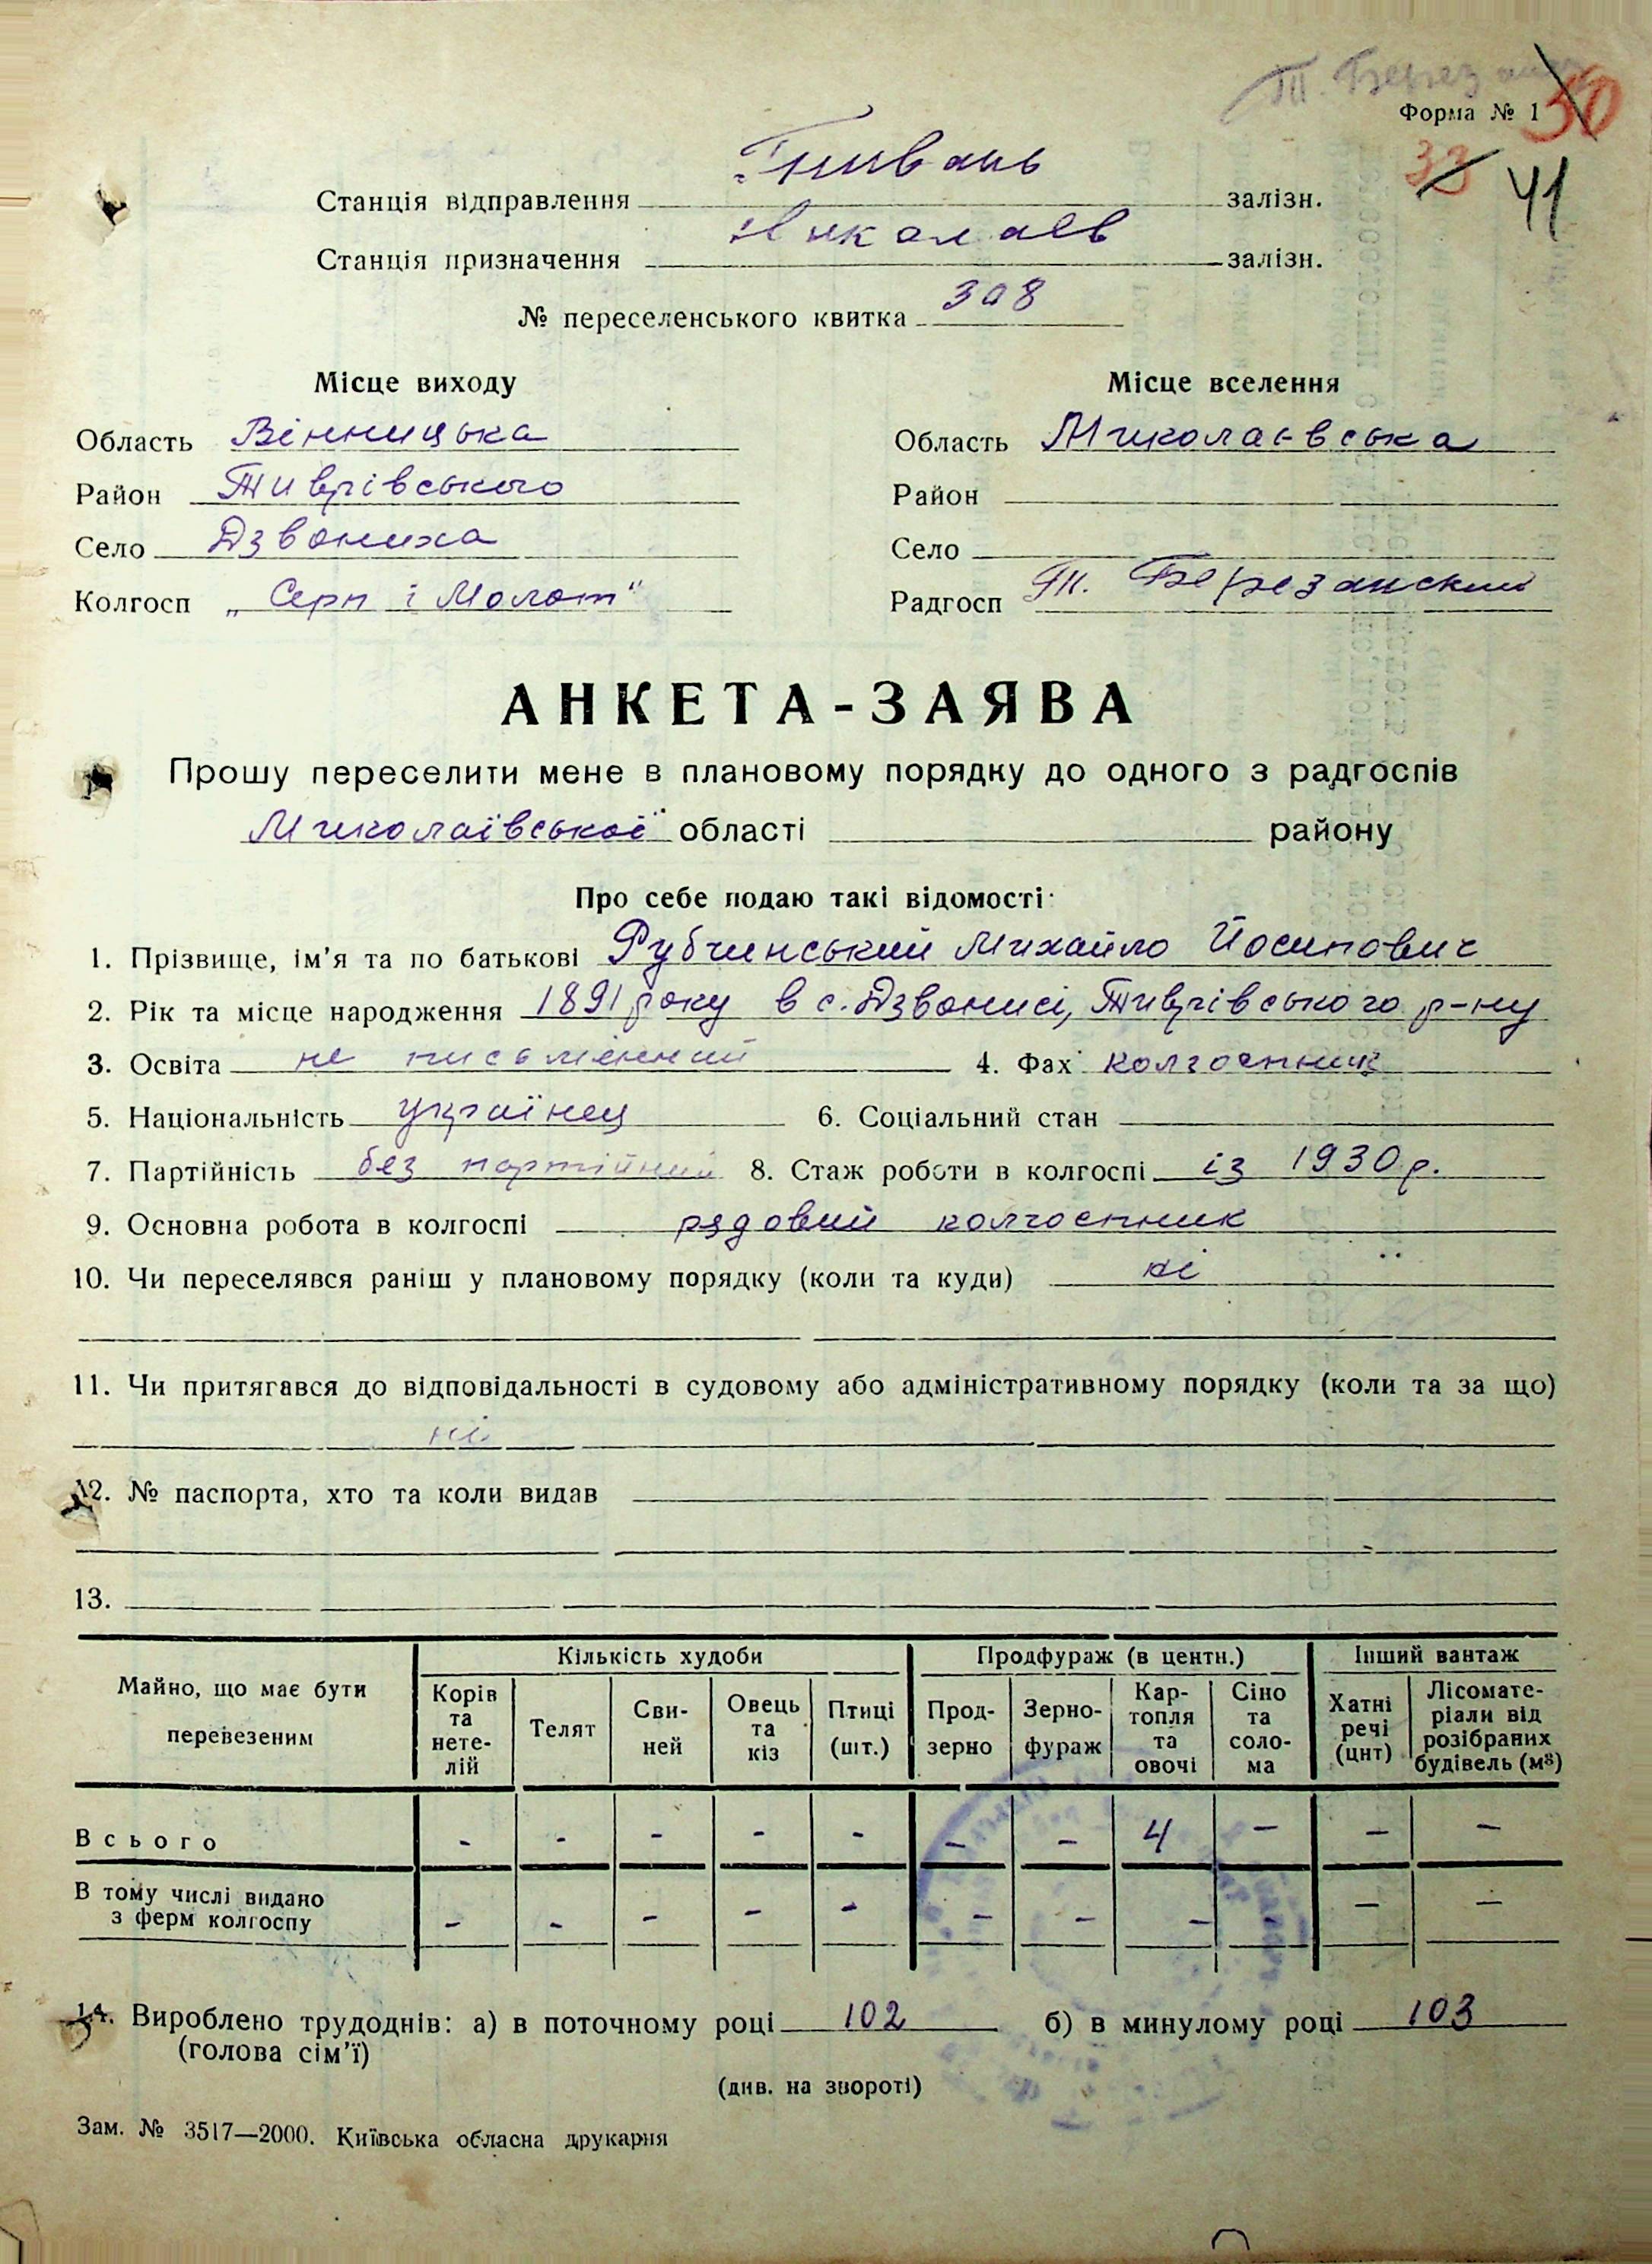 Т. Березанск
Форма № 1
50
33 41
Гнивань
Станція відправлення залізн.
Николаев
Станція призначення залізн.
№ переселенського квитка 308
Місце виходу Місце вселення
Область Вінницька Область Миколаєвська
Район Тиврівського Район
Село Дзвониха Село
Колгосп „Серп і Молот" Радгосп Т. Березанский
АНКЕТА-ЗАЯВА
Прошу переселити мене в плановому порядку до одного з радгоспів
Миколаївської області району
Про себе подаю такі відомості:
1. Прізвище, ім'я та по батькові Рубчинський Михайло Йосипович
2. Рік та місце народження 1891 року в с. Дзвонисі, Тиврівського р-ну
3. Освіта не письмённий 4. Фах колгоспник
5. Національність українец 6. Соціальний стан
7. Партійність без партійний 8. Стаж роботи в колгоспі із 1930 р.
9. Основна робота в колгоспі рядовий колгоспник
10. Чи переселявся раніш у плановому порядку (коли та куди) ні
11. Чи притягався до відповідальності в судовому або адміністративному порядку (коли та за що)
ні
12. № паспорта, хто та коли видав
13.
Майно, що має бути перевезеним Кількість худоби Продфураж (в центн.) Інший вантаж
Корів та нете-лій Телят Сви-ней Овець та кіз Птиці (шт.) Прод-зерно Зерно-фураж Кар-топля та овочі Сіно та соло-ма Хатні речі (цнт) Лісомате-ріали від розібраних будівель (м³)
Всього - - - - - - - 4 - - -
В тому числі видано з ферм колгоспу - - - - - - - - - - -
14. Вироблено трудоднів: а) в поточному році 102 б) в минулому році 103
(голова сім'ї)
(див. на звороті)
Зам. № 3517—2000. Київська обласна друкарня